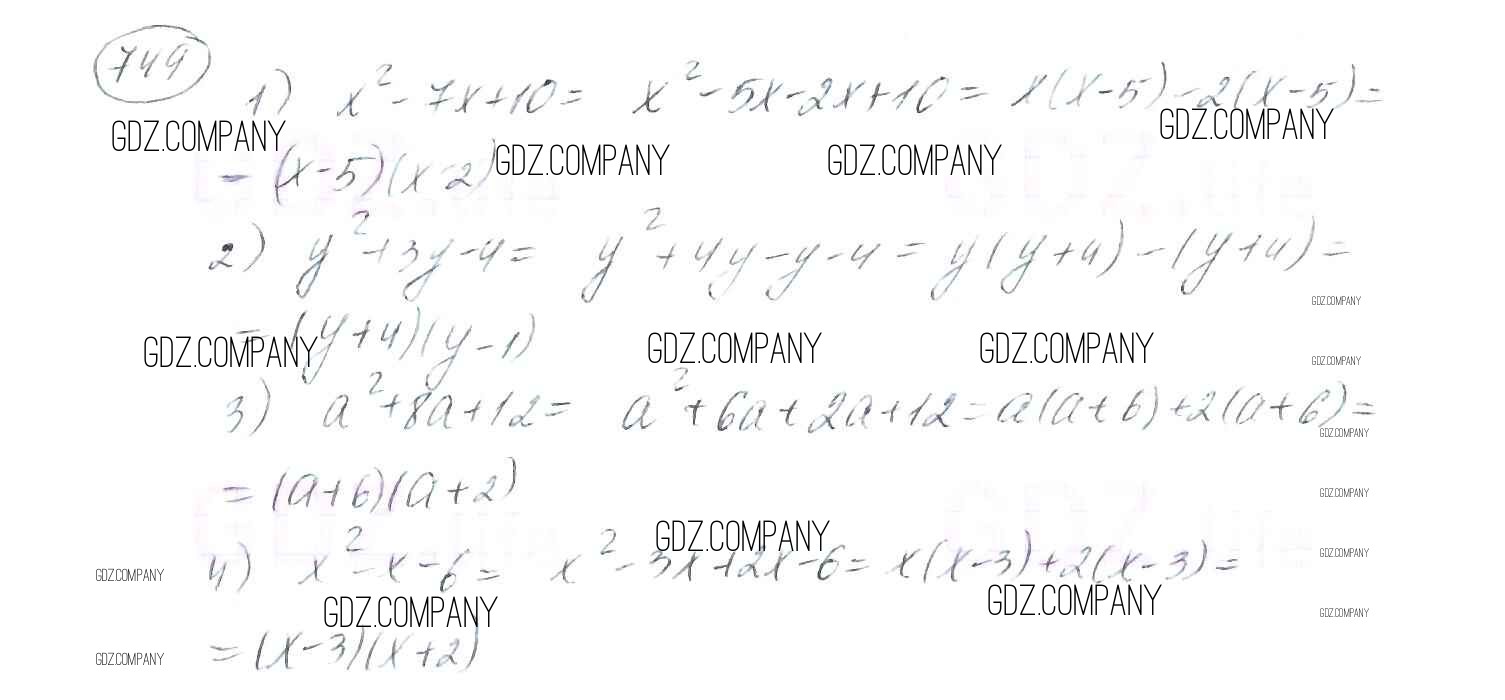 749
1) x² - 7x + 10 = x² - 5x - 2x + 10 = x(x - 5) - 2(x - 5) =
GDZ.COMPANY GDZ.COMPANY
= (x - 5)(x - 2) GDZ.COMPANY GDZ.COMPANY
2) y² + 3y - 4 = y² + 4y - y - 4 = y(y + 4) - (y + 4) =
GDZ.COMPANY
= (y + 4)(y - 1)
GDZ.COMPANY GDZ.COMPANY GDZ.COMPANY GDZ.COMPANY
3) a² + 8a + 12 = a² + 6a + 2a + 12 = a(a + 6) + 2(a + 6) =
GDZ.COMPANY
= (a + 6)(a + 2) GDZ.COMPANY
GDZ.COMPANY
4) x² - x - 6 = x² - 3x + 2x - 6 = x(x - 3) + 2(x - 3) =
GDZ.COMPANY GDZ.COMPANY
GDZ.COMPANY GDZ.COMPANY GDZ.COMPANY
= (x - 3)(x + 2)
GDZ.COMPANY